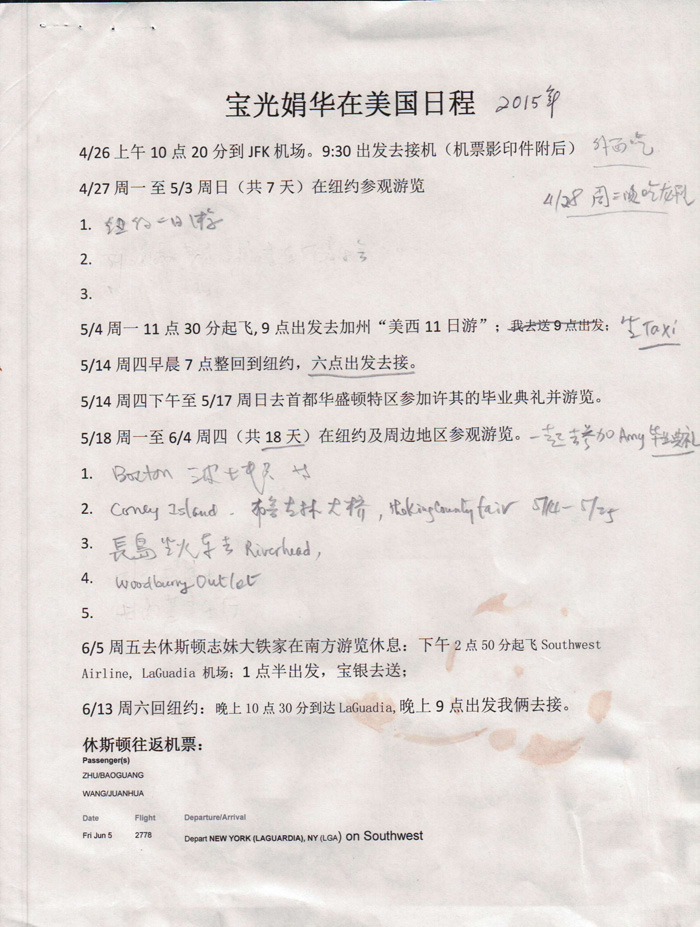 宝光娟华在美国日程 2015年
4/26 上午 10 点 20 分到 JFK 机场。9:30 出发去接机（机票影印件附后） 外面吃
4/27 周一 至 5/3 周日（共 7 天）在纽约参观游览
4/28 周二晚吃龙虾
1. 纽约一日游
2.
3.
5/4 周一 11 点 30 分起飞, 9 点出发去加州“美西 11 日游”；我去送 9 点出发; 坐Taxi
5/14 周四早晨 7 点整回到纽约，六点出发去接。
5/14 周四下午至 5/17 周日去首都华盛顿特区参加许其的毕业典礼并游览。
5/18 周一至 6/4 周四（共 18 天）在纽约及周边地区参观游览。一起去参加 Amy 毕业典礼
1. Boston 波士顿
2. Coney Island. 布鲁克林大桥, county fair 5/25
3. 長島坐火车去 Riverhead,
4. Woodbury Outlet
5.
6/5 周五去休斯顿志妹大铁家在南方游览休息：下午 2 点 50 分起飞 Southwest
Airline, LaGuadia 机场；1 点半出发，宝银去送；
6/13 周六回纽约：晚上 10 点 30 分到达 LaGuadia, 晚上 9 点出发我俩去接。
休斯顿往返机票：
Passenger(s)
ZHU/BAOGUANG
WANG/JUANHUA
Date Flight Departure/Arrival
Fri Jun 5 2778 Depart NEW YORK (LAGUARDIA), NY (LGA) on Southwest